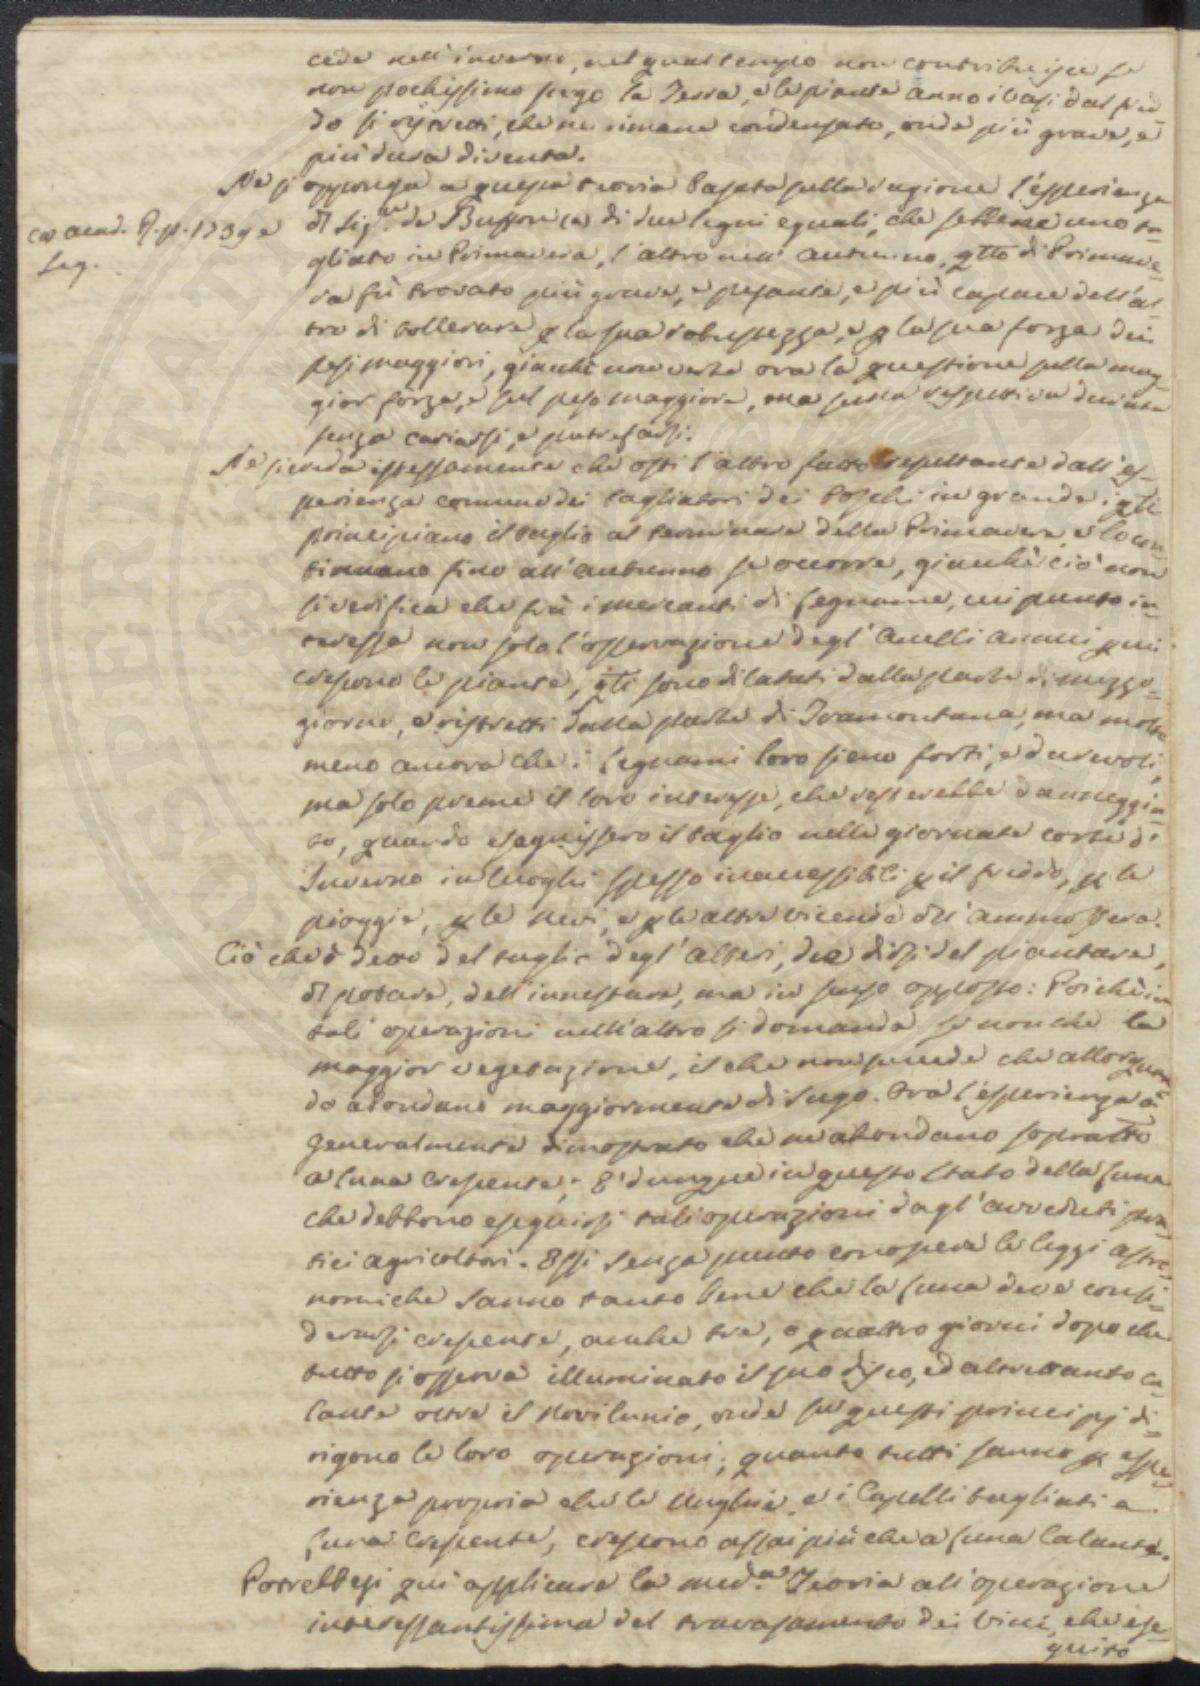 cede nell'inverno, nel qual tempo non contribuisce se
non pochissimo sugo la Terra, e le piante anno i vasi dal fred=
do sì ristretti, che ne rimane condensato, onde più grave, e
più dura diventa.
Ne si opponga a questa teoria basata sulla ragione l'esperienza
(a) acad. R. p. 1739 e
seg.
di Sig.r de Buffon (a) di due legni eguali, che sebbene uno ta=
gliato in Primavera, l'altro nell'Autunno, qtto di Primave=
ra fù trovato più grave, e pesante, e più capace dell'al=
tro di sollevare p la sua robustezza, e p la sua forza dei
pesi maggiori, giacchè non verte ora la questione sulla mag=
gior forza, e sul peso maggiore, ma sulla respettiva durata
senza cariarsi, e putrefarsi.
Ne si creda istessamente che osti l'altro fatto respettante dall'es=
perienza comune dei tagliatori dei Boschi in grande i qli
principiano il taglio al terminare della Primavera, e lo con=
tinuano fino all'autunno se occorre, giacchè ciò non
si verifica che frà i mercanti di legname, cui punto in=
teressa non solo l'osservazione degl'Anelli annui p cui
crescono le piante, qli sono dilatati dalla parte di mezzo=
giorno, e ristretti dalla parte di Tramontana, ma molto
meno ancora che i legnami loro sieno forti, e durevoli,
ma solo preme il loro interesse, che resterebbe danneggia=
to, quando eseguissero il taglio nelle giornate corte d'
Inverno in luoghi spesso inaccessibili p il freddo, p le
pioggie, p le nevi, e p le altre vicende dell'ammosfera.
Ciò che è detto del taglio degl'alberi, dee dirsi del piantare,
di potare, dell'innestare, ma in senso opposto: Poichè in
tali operazioni null'altro si domanda se non che la
maggior vegetazione, il che non succede che allorquan=
do abondano maggiormente di sugo. Ora l'esperienza à
generalmente dimostrato che ne abondano sopratto
a luna crescente; È dunque in questo stato della luna
che debbono eseguirsi tali operazioni dagl'avveduti pra=
tici agricoltori. Essi senza punto conoscere le leggi astro=
nomiche sanno tanto bene che la luna deve consi=
derarsi crescente, anche tre, o quattro giorni dopo che
tutto si osserva illuminato il suo disco, ed altrettanto ca=
lante oltre il Novilunio, onde su questi principj di=
rigono le loro operazioni; quanto tutti sanno p espe=
rienza propria che le Unghie, e i Capelli tagliati a
luna Crescente, crescono assai più che a luna Calante.
Potrebbesi qui applicare la med.a Teoria all'operazione
interessantissima del travasamento dei vini, che ese=
guito